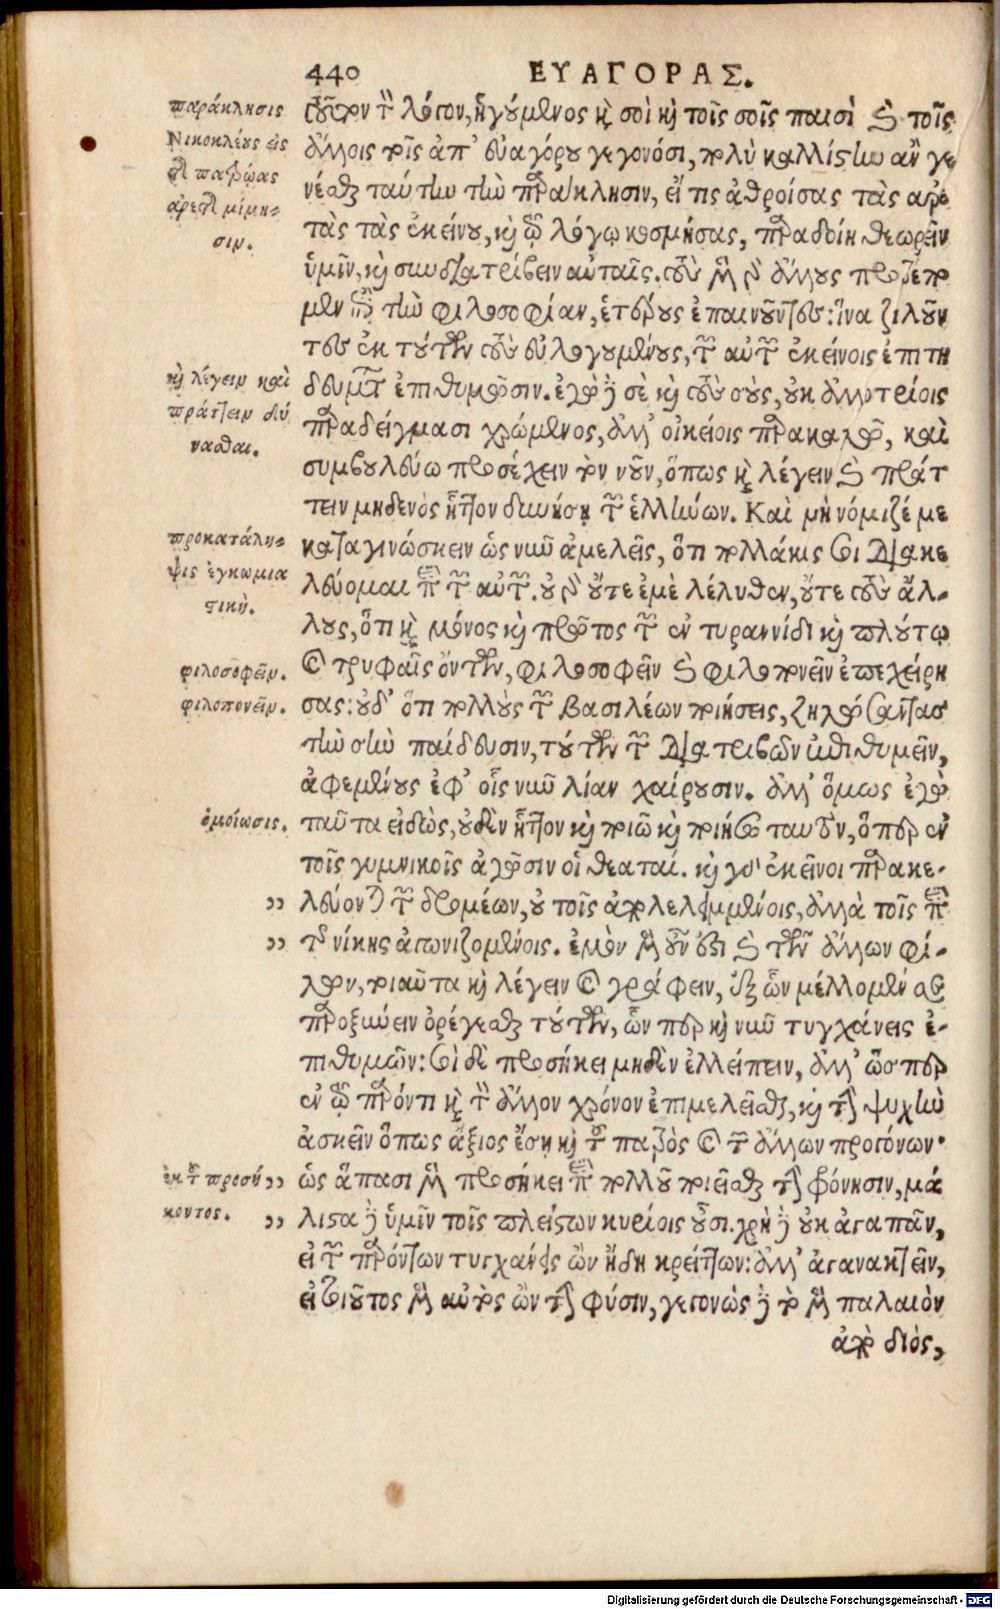 440 ΕΥΑΓΟΡΑΣ.
παράκλησις
Νικοκλέους εἰς
τὴν πατρῴας
ἀρετῆς μίμη-
σιν.
τοῦτον τὸν λόγον, ἡγούμενος καὶ σοὶ καὶ τοῖς σοῖς παισὶ καὶ τοῖς
ἄλλοις τοῖς ἀπ' εὐαγόρου γεγονόσι, πολὺ καλλίστην ἂν γε
νέσθαι ταύτην τὴν παράκλησιν, εἴ τις ἀθροίσας τὰς ἀρε
τὰς τὰς ἐκείνου, καὶ τῷ λόγῳ κοσμήσας, παραδοίη θεωρεῖν
ὑμῖν, καὶ συνδιατρίβειν αὐταῖς. τοὺς μὲν γὰρ ἄλλους προτρέπο
μεν ἐπὶ τὴν φιλοσοφίαν, ἑτέρους ἐπαινοῦντες: ἵνα ζηλοῦν
τες ἐκ τούτων τοὺς εὐλογουμένους, τῶν αὐτῶν ἐκείνοις ἐπιτη
καὶ λέγειν καὶ
πράττειν δύ
νασθαι.
δευμάτων ἐπιθυμῶσιν. ἐγὼ δὲ σὲ καὶ τοὺς σοὺς, οὐκ ἀλλοτρίοις
παραδείγμασι χρώμενος, ἀλλ' οἰκείοις παρακαλῶ, καὶ
συμβουλεύω προσέχειν τὸν νοῦν, ὅπως καὶ λέγειν καὶ πράτ
τειν μηδενὸς ἧττον δυνήσῃ τῶν ἑλλήνων. Καὶ μὴ νόμιζέ με
προκατάλη-
ψις ἐγκωμια
στική.
καταγινώσκειν ὡς νῦν ἀμελεῖς, ὅτι πολλάκις σοι διακε
λεύομαι περὶ τῶν αὐτῶν. οὐ γὰρ οὔτε ἐμὲ λέληθεν, οὔτε τοὺς ἄλ-
λους, ὅτι καὶ μόνος καὶ πρῶτος τῶν ἐν τυραννίδι καὶ πλούτῳ
φιλοσοφεῖν.
φιλοπονεῖν.
καὶ τρυφαῖς ὄντων, φιλοσοφεῖν καὶ φιλοπονεῖν ἐπεχείρη
σας: οὐδ' ὅτι πολλοὺς τῶν βασιλέων ποιήσεις, ζηλώσαντας
τὴν σὴν παίδευσιν, τούτων τῶν διατριβῶν ἐπιθυμεῖν,
ἀφεμένους ἐφ' οἷς νῦν λίαν χαίρουσιν. ἀλλ' ὅμως ἐγὼ
ὁμοίωσις.
ταῦτα εἰδὼς, οὐδὲν ἧττον καὶ ποιῶ καὶ ποιήσω ταυτὸν, ὅπερ ἐν
τοῖς γυμνικοῖς ἀγῶσιν οἱ θεαταί. καὶ γὰρ ἐκεῖνοι παρακε-
,, λεύονται τῶν δρομέων, οὐ τοῖς ἀπολελειμμένοις, ἀλλὰ τοῖς περὶ
,, τῆς νίκης ἀγωνιζομένοις. ἐμὸν μὲν οὖν ἐστι καὶ τῶν ἄλλων φί-
λων, τοιαῦτα καὶ λέγειν καὶ γράφειν, ἐξ ὧν μέλλομέν σε
παροξύνειν ὀρέγεσθαι τούτων, ὧν περ καὶ νῦν τυγχάνεις ἐ-
πιθυμῶν: σοὶ δὲ προσήκει μηδὲν ἐλλείπειν, ἀλλ' ὥσπερ
ἐν τῷ παρόντι καὶ τὸν ἄλλον χρόνον ἐπιμελεῖσθαι, καὶ τὴν ψυχὴν
ἀσκεῖν ὅπως ἄξιος ἔσῃ καὶ τοῦ πατρὸς καὶ τῶν ἄλλων προγόνων·
ἐκ τοῦ προσή
κοντος.
,, ὡς ἅπασι μὲν προσήκει περὶ πολλοῦ ποιεῖσθαι τὴν φρόνησιν, μά
,, λιστα δὲ ὑμῖν τοῖς πλείστων κυρίοις οὖσι. χρὴ δὲ οὐκ ἀγαπᾶν,
εἰ τῶν παρόντων τυγχάνεις ὢν ἤδη κρείττων: ἀλλ' ἀγανακτεῖν,
εἰ τοιοῦτος μὲν αὐτὸς ὢν τὴν φύσιν, γεγονὼς δὲ τὸ μὲν παλαιὸν
ἀπὸ διὸς,
Digitalisierung gefördert durch die Deutsche Forschungsgemeinschaft - DFG